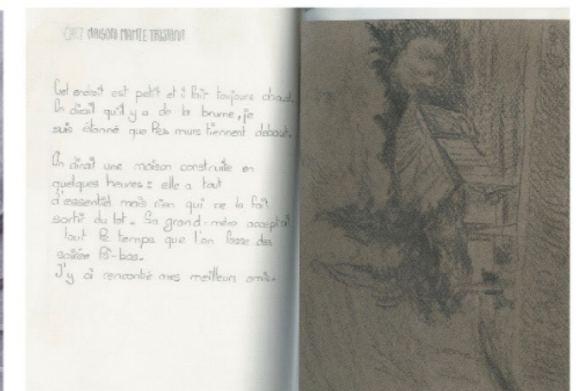 CHEZ MAISON MAMIE TRISTANA
Cet endroit est petit et il fait toujours chaud.
On dirait qu'il y a de la brume, je
suis étonné que les murs tiennent debout.
On dirait une maison construite en
quelques heures : elle a tout
d'essentiel mais rien qui ne la fait
sortir du lot. Sa grand-mère acceptait
tout le temps que l'on fasse des
soirée là-bas.
J'y ai rencontré mes meilleurs amis.